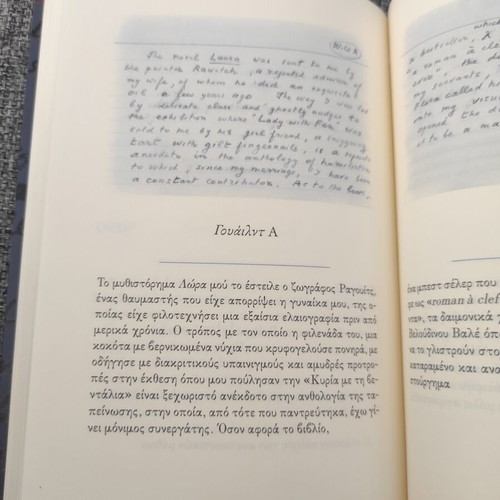 Wild A
The novel Laura was sent to me by
the painter Rawitch, a rejected admirer of
my wife, of whom he did an exquisite
oil a few years ago. The way I was led
by delicate clues and ghostly nudges to
the exhibition where "Lady with Fan" was
sold to me by his girl friend, a sniggering
tart with gilt fingernails, is a separate
anecdote in the anthology of humiliation
to which, since my marriage, I have been
a constant contributor. As to the book,
Γουάιλντ Α
Το μυθιστόρημα Λώρα μού το έστειλε ο ζωγράφος Ραγουίτς,
ένας θαυμαστής που είχε απορρίψει η γυναίκα μου, της ο-
ποίας είχε φιλοτεχνήσει μια εξαίσια ελαιογραφία πριν από
μερικά χρόνια. Ο τρόπος με τον οποίο η φιλενάδα του, μια
κοκότα με βερνικωμένα νύχια που κρυφογελούσε πονηρά, με
οδήγησε με διακριτικούς υπαινιγμούς και αμυδρές προτρο-
πές στην έκθεση όπου μου πούλησαν την «Κυρία με τη βε-
ντάλια» είναι ξεχωριστό ανέκδοτο στην ανθολογία της τα-
πείνωσης, στην οποία, από τότε που παντρεύτηκα, έχω γί-
νει μόνιμος συνεργάτης. Όσον αφορά το βιβλίο,
which
a bestseller,
"a roman à clef
my servants,
opened the
to be a
ένα μπεστ σέλερ που
ως «roman à clef
ντα», τα δαιμονικά
Βελούδινου Βαλέ όπ
να το γλιστρούν στο
καταραμένο και ανα
τούργημα